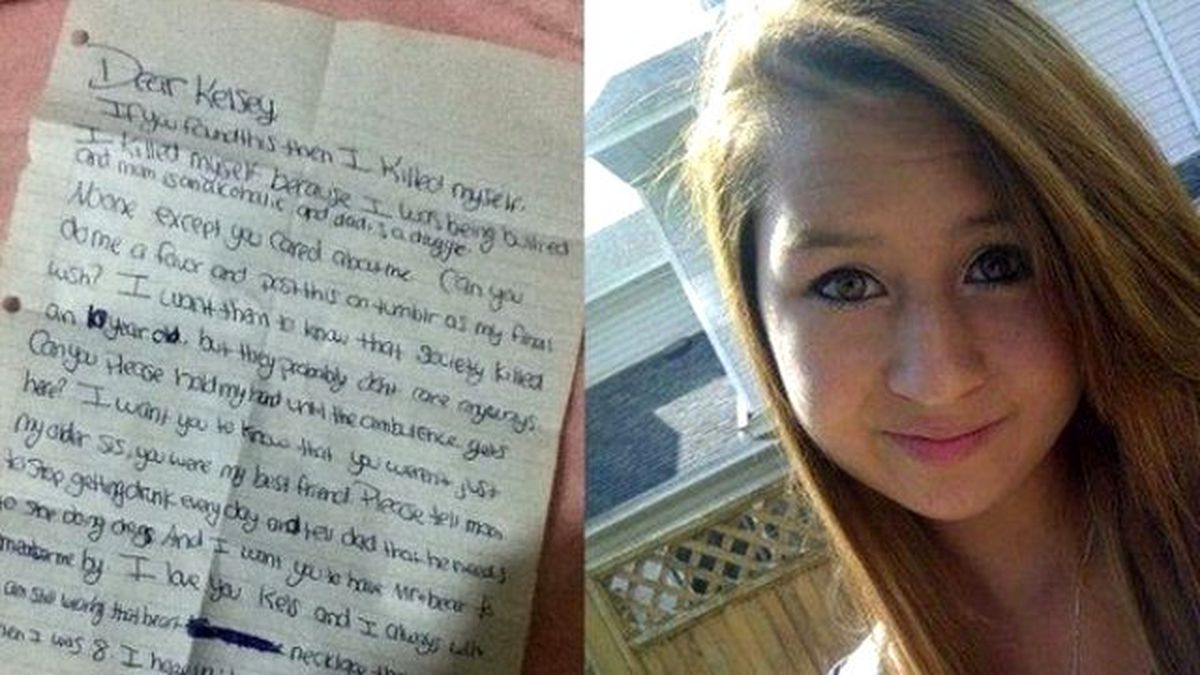 Dear Kelsey,
If you found this then I killed myself.
I killed myself because I was being bullied
and mom is an alcoholic and dad is a druggie
Noone except you cared about me. Can you
do me a favor and post this on tumblr as my final
wish? I want them to know that society killed
an 10 year old, but they probably don't care anyways.
Can you please hold my hand until the ambulence gets
here? I want you to know that you weren't just
my older sis, you were my best friend. Please tell mom
to stop getting drunk every day and tell dad that he needs
to stop doing drugs. And I want you to have Mr. bear to
me by. I love you Kels and I always will
am still wearing that heart necklace
when I was 8. I